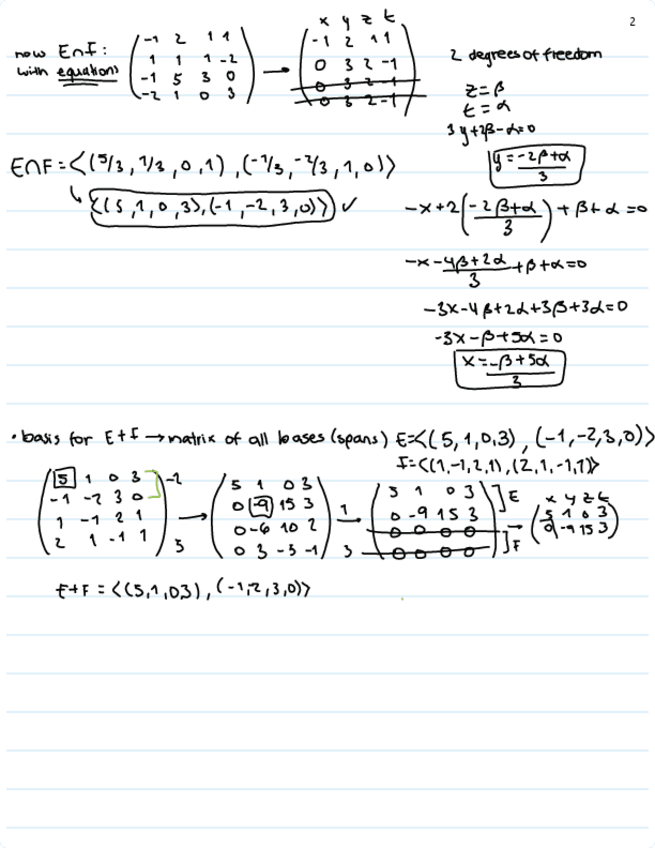 2
now E∩F:
with equations
(-1 2 1 1
1 1 1 -2
-1 5 3 0
-2 1 0 3) →
x y z t
(-1 2 1 1
0 3 2 -1
0 3 2 -1
0 3 2 -1)
2 degrees of freedom
z=β
t=α
3y+2β-α=0
y=-2β+α/3
-x+2(-2β+α/3)+β+α=0
-x-4β+2α/3+β+α=0
-3x-4β+2α+3β+3α=0
-3x-β+5α=0
x=-β+5α/3
E∩F=<(5/3,1/3,0,1),(-1/3,-2/3,1,0)>
↳ <(5,1,0,3),(-1,-2,3,0)> ✓
• basis for E+F → matrix of all bases (spans) E=<(5,1,0,3),(-1,-2,3,0)>
F=<(1,-1,2,1),(2,1,-1,1)>
(5 1 0 3
-1 -2 3 0
1 -1 2 1
2 1 -1 1) 5 →
(5 1 0 3
0 -9 15 3
0 -6 10 2
0 3 -5 -1) 1 3 →
(5 1 0 3
0 -9 15 3
0 0 0 0
0 0 0 0) ]E ]F →
x y z t
(5 1 0 3
0 -9 15 3)
E+F=<(5,1,03),(-1,2,3,0)>